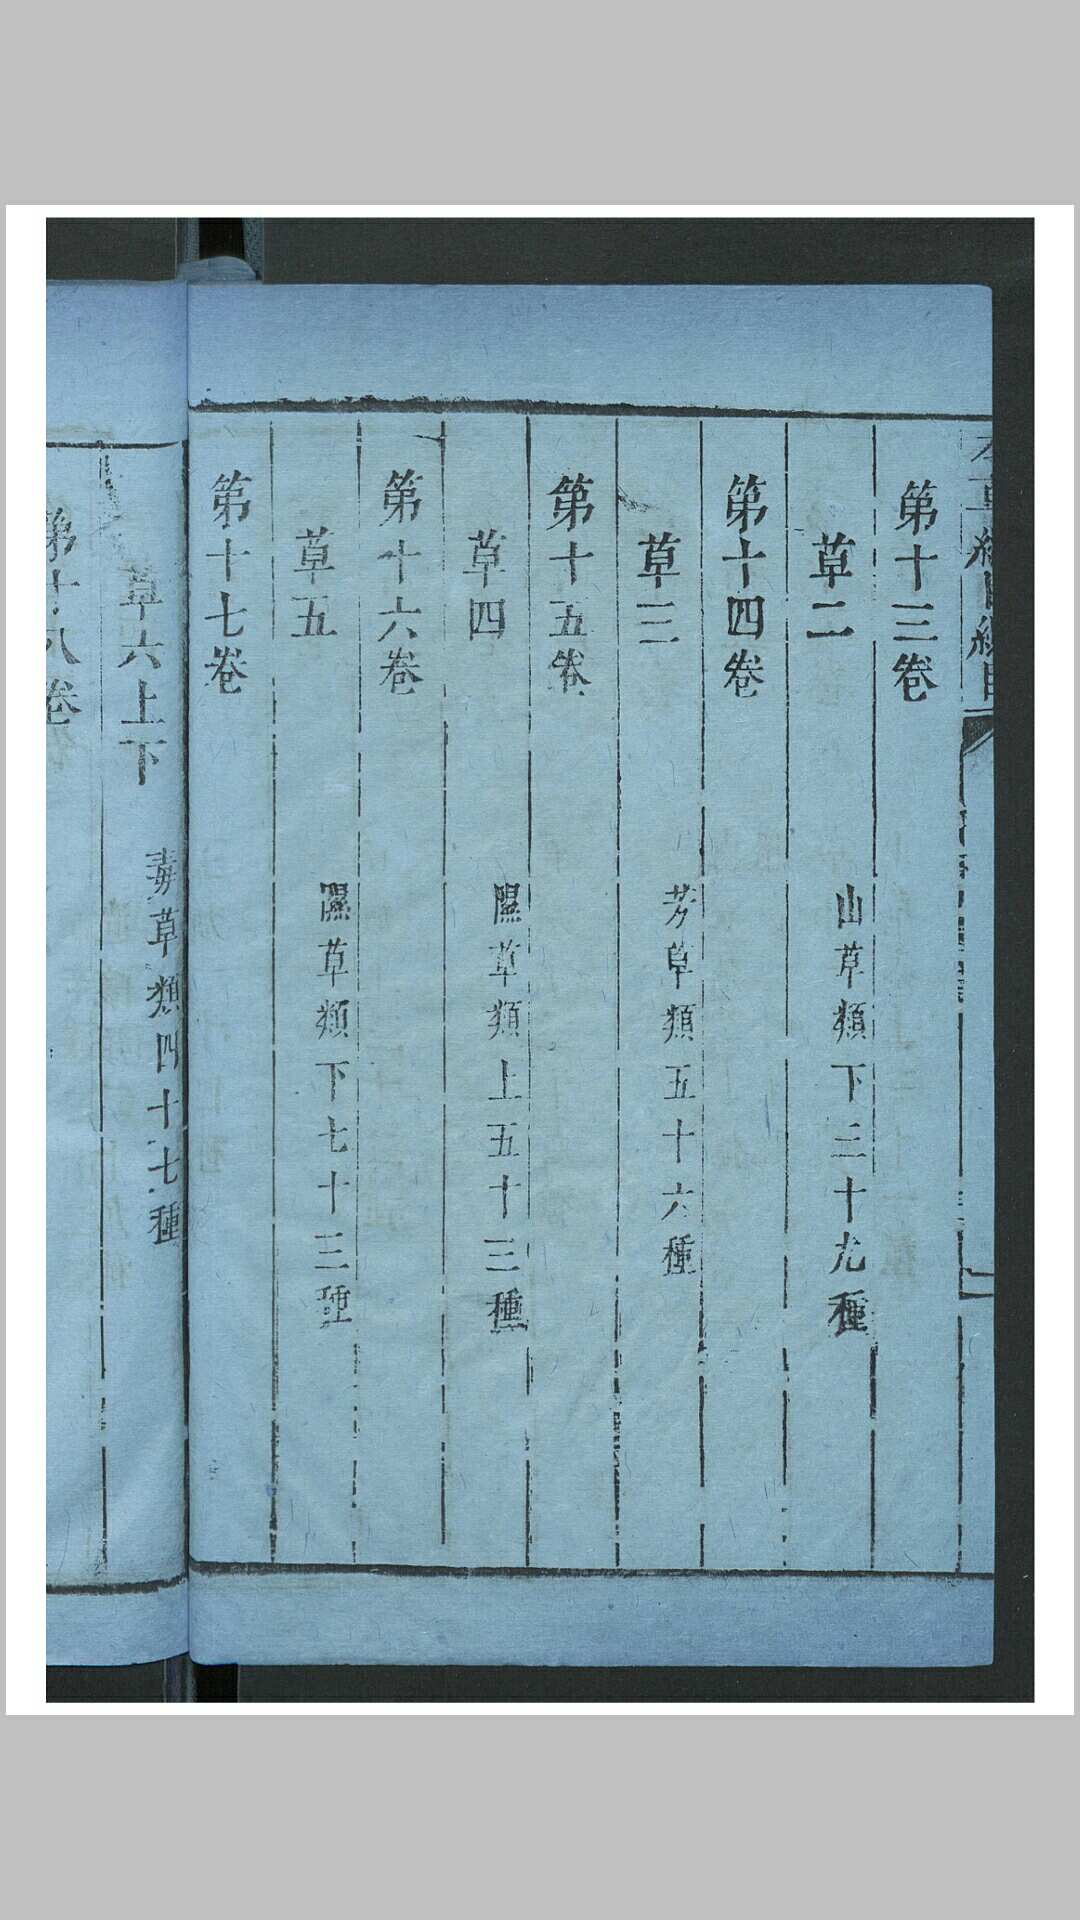 本草綱目總目
第十三卷
草二
山草類下三十九種
第十四卷
草三
芳草類五十六種
第十五卷
草四
隰草類上五十三種
第十六卷
草五
隰草類下七十三種
第十七卷
草六上下
毒草類四十七種
第十八卷